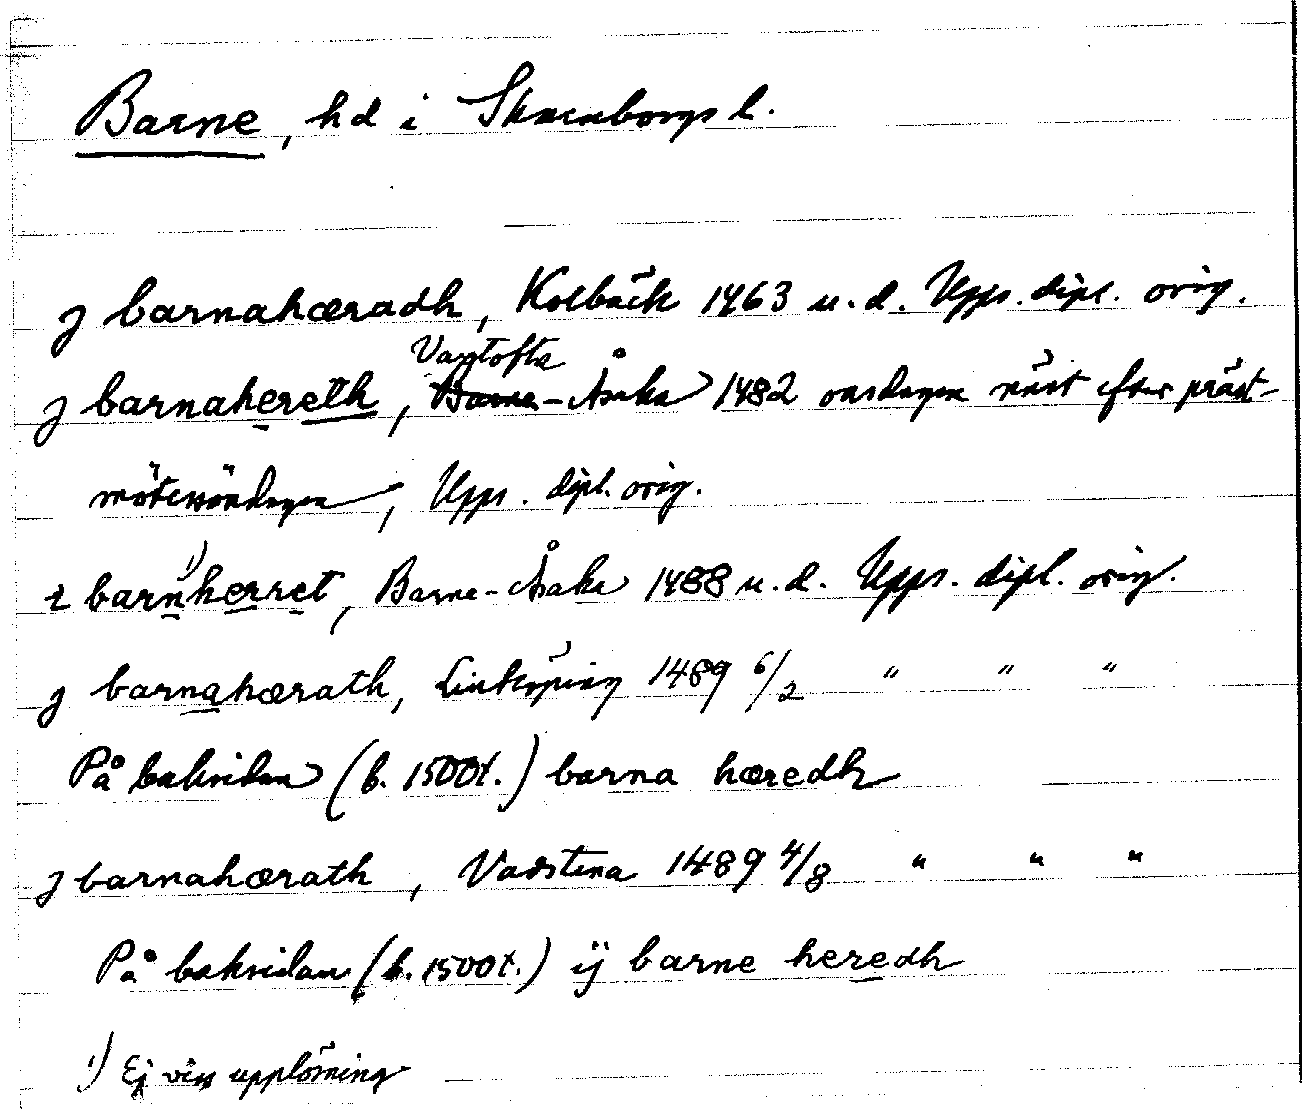 Barne, hd i Skaraborgs l.
j barnahæradh, Kolbäck 1463 u.d. Upps. dipl. orig.
Vartofta
j barnahereth, Barne-Åsaka 1482 onsdagen näst efter präst-
mötessöndagen, Upps. dipl. orig.
z barnherret, Barne-Åsaka 1488 u.d. Upps. dipl. orig.
1)
j barnahærath, Linköping 1489 6/2 " " "
På baksidan (b. 1500t.) barna hæredh
j barnahærath, Vadstena 1489 4/8 " " "
På baksidan (b. 1500t.) ij barne heredh
1) Ej viss upplösning